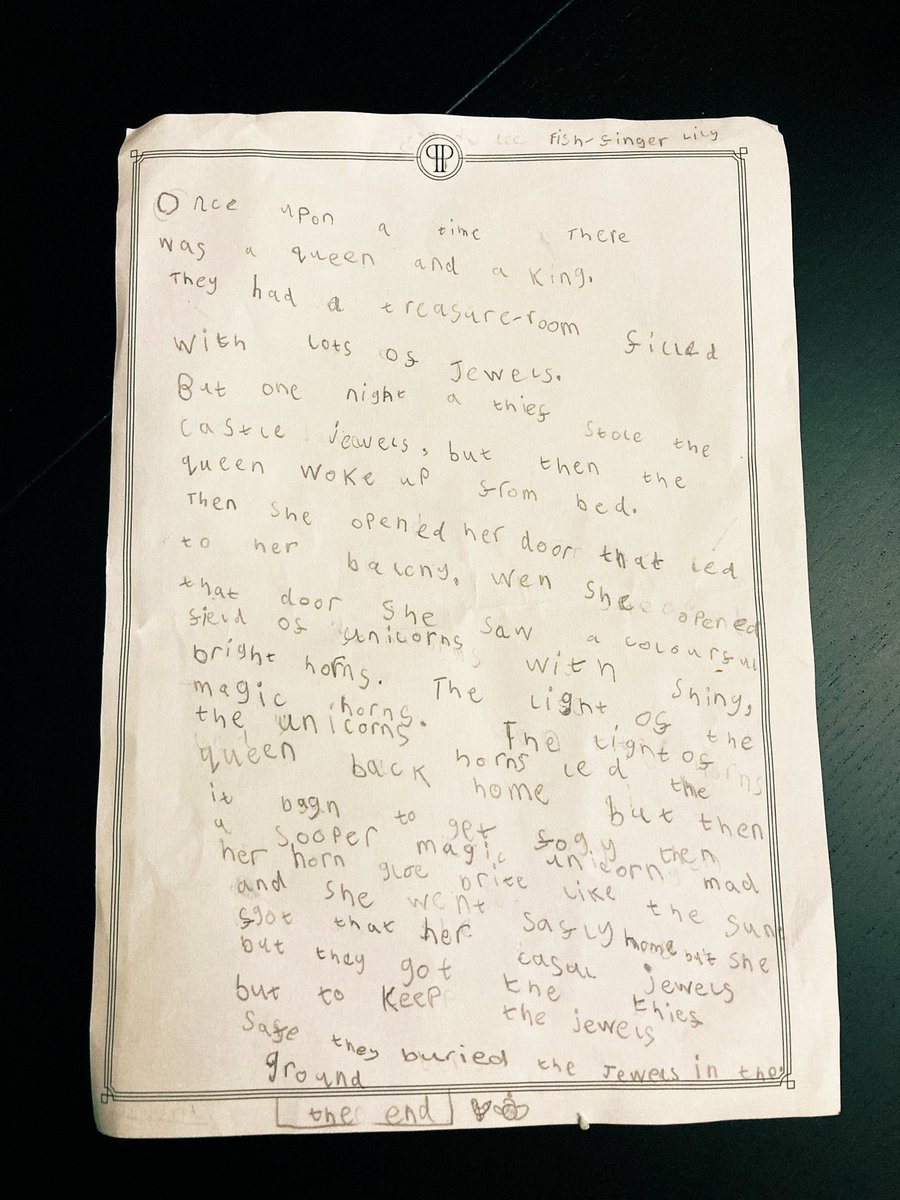 Fish-finger Lily
Once upon a time There
was a queen and a King.
They had a treasure-room filled
with lots of Jewels.
But one night a thief stole the
castle jewels, but then the
queen woke up from bed.
Then she opened her door that led
to her balcny. Wen she opened
that door she saw a colourful
field of unicorns with shiny,
bright horns. The light of the
magic horns. The light of
the unicorns horns led the
queen back home but then
it bagn to get fogy then
a sooper magic unicorn mad
her horn gloe brite like the sun
and she went safly home but she
fgot that her casal jewels
but they got the thief
but to keep the jewels
safe they buried the Jewels in the
ground
the end